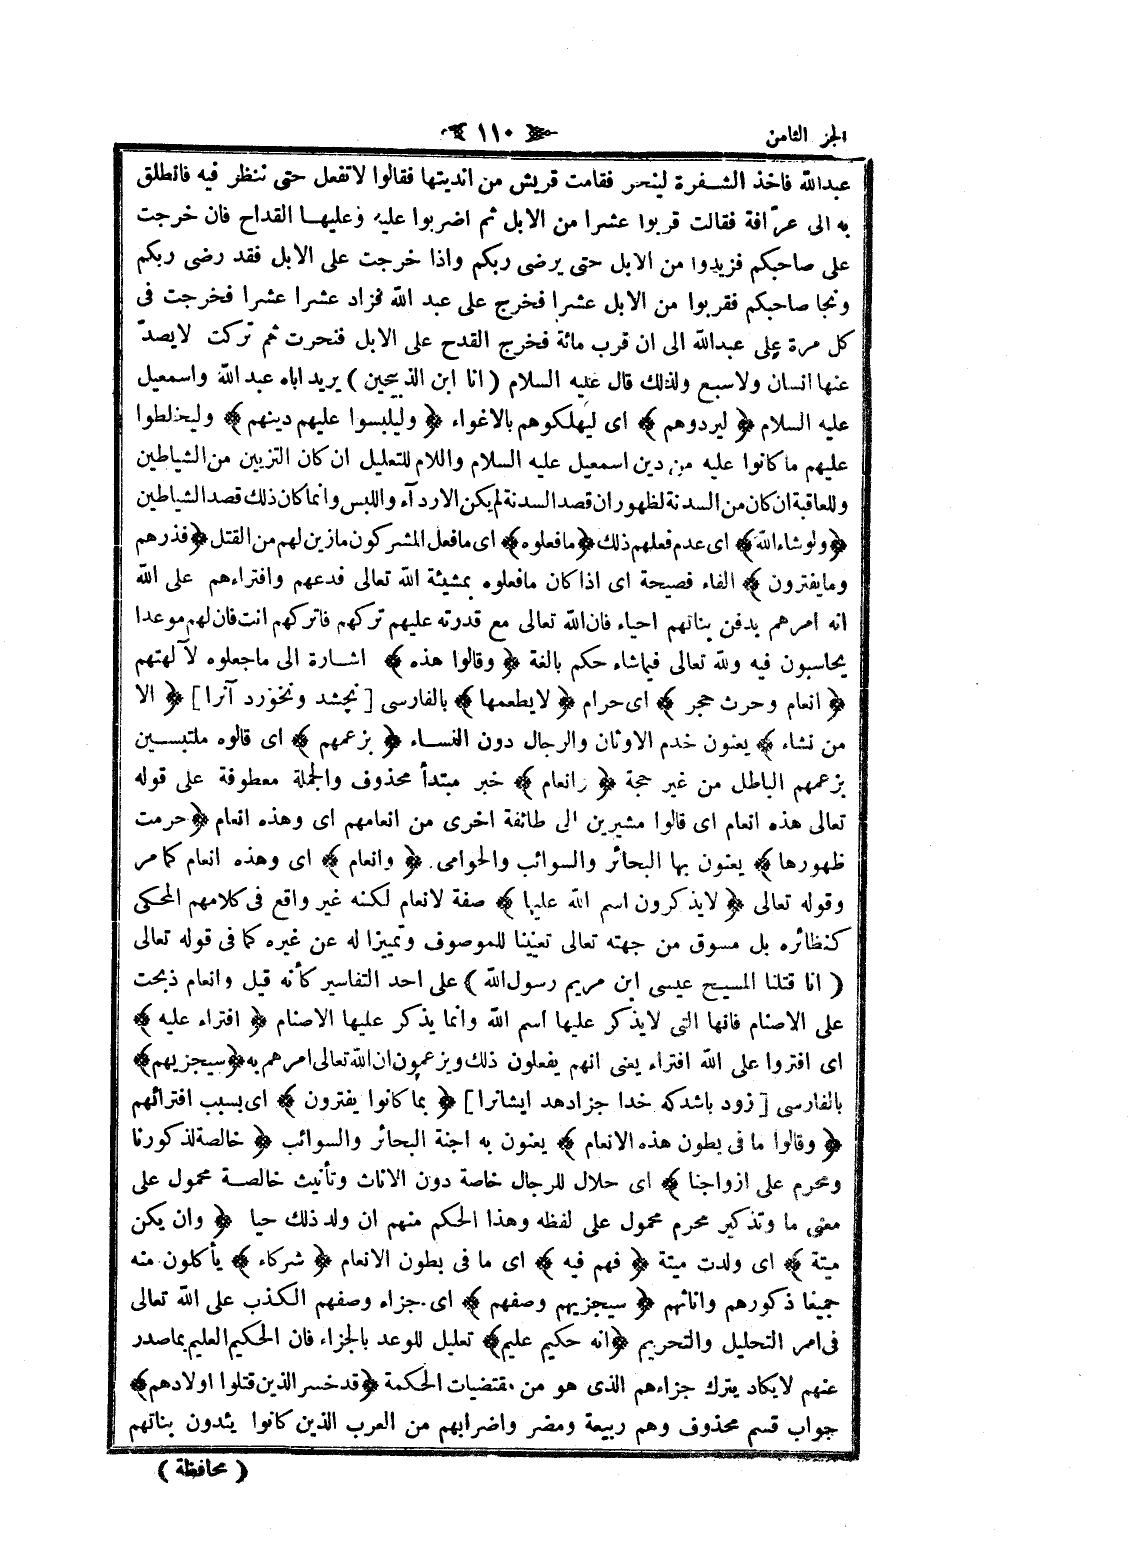 الجزء الثامن ١١٠
عبدالله فاخذ الشفرة لينحر فقامت قريش من انديتها فقالوا لاتفعل حتى ننظر فيه فانطلق
به الى عرّافة فقالت قربوا عشرا من الابل ثم اضربوا عليه وعليها القداح فان خرجت
على صاحبكم فزيدوا من الابل حتى يرضى ربكم واذا خرجت على الابل فقد رضى ربكم
ونجا صاحبكم فقربوا من الابل عشرا فخرج على عبد الله فزاد عشرا عشرا فخرجت فى
كل مرة على عبدالله الى ان قرب مائة فخرج القدح على الابل فنحرت ثم تركت لايصدّ
عنها انسان ولاسبع ولذلك قال عليه السلام ( انا ابن الذبيحين ) يريد اباه عبد الله واسمعيل
عليه السلام ﴿ ليردوهم ﴾ اى ليهلكوهم بالاغواء ﴿ وليلبسوا عليهم دينهم ﴾ وليخلطوا
عليهم ماكانوا عليه من دين اسمعيل عليه السلام واللام للتعليل ان كان التزيين من الشياطين
وللعاقبة ان كان من السدنة لظهور ان قصد السدنة لم يكن الارداء واللبس وانما كان ذلك قصد الشياطين
﴿ ولو شاء الله ﴾ اى عدم فعلهم ذلك ﴿ مافعلوه ﴾ اى مافعل المشركون مازين لهم من القتل ﴿ فذرهم
ومايفترون ﴾ الفاء فصيحة اى اذا كان مافعلوه بمشيئة الله تعالى فدعهم وافتراءهم على الله
انه امرهم بدفن بناتهم احياء فان الله تعالى مع قدرته عليهم تركهم فاتركهم انت فان لهم موعدا
يحاسبون فيه ولله تعالى فيماشاء حكم بالغة ﴿ وقالوا هذه ﴾ اشارة الى ماجعلوه لآلهتهم
﴿ انعام وحرث حجر ﴾ اى حرام ﴿ لايطعمها ﴾ بالفارسى [ نچشد ونخورد آنرا ] ﴿ الا
من نشاء ﴾ يعنون خدم الاوثان والرجال دون النساء ﴿ بزعمهم ﴾ اى قالوه ملتبسين
بزعمهم الباطل من غير حجة ﴿ وانعام ﴾ خبر مبتدأ محذوف والجملة معطوفة على قوله
تعالى هذه انعام اى قالوا مشيرين الى طائفة اخرى من انعامهم اى وهذه انعام ﴿ حرمت
ظهورها ﴾ يعنون بها البحائر والسوائب والحوامى ﴿ وانعام ﴾ اى وهذه انعام كما مر
وقوله تعالى ﴿ لايذكرون اسم الله عليها ﴾ صفة لانعام لكنه غير واقع فى كلامهم المحكى
كنظائره بل مسوق من جهته تعالى تعيينا للموصوف وتمييزا له عن غيره كما فى قوله تعالى
( انا قتلنا المسيح عيسى ابن مريم رسول الله ) على احد التفاسير كأنه قيل وانعام ذبحت
على الاصنام فانها التى لايذكر عليها اسم الله وانما يذكر عليها الاصنام ﴿ افتراء عليه ﴾
اى افتروا على الله افتراء يعنى انهم يفعلون ذلك ويزعمون ان الله تعالى امرهم به ﴿ سيجزيهم ﴾
بالفارسى [ زود باشدكه خدا جزادهد ايشانرا ] ﴿ بما كانوا يفترون ﴾ اى بسبب افترائهم
﴿ وقالوا ما فى بطون هذه الانعام ﴾ يعنون به اجنة البحائر والسوائب ﴿ خالصة لذكورنا
ومحرم على ازواجنا ﴾ اى حلال للرجال خاصة دون الاناث وتأنيث خالصة محمول على
معنى ما وتذكير محرم محمول على لفظه وهذا الحكم منهم ان ولد ذلك حيا ﴿ وان يكن
ميتة ﴾ اى ولدت ميتة ﴿ فهم فيه ﴾ اى ما فى بطون الانعام ﴿ شركاء ﴾ يأكلون منه
جميعا ذكورهم واناثهم ﴿ سيجزيهم وصفهم ﴾ اى جزاء وصفهم الكذب على الله تعالى
فى امر التحليل والتحريم ﴿ انه حكيم عليم ﴾ تعليل للوعد بالجزاء فان الحكيم العليم بماصدر
عنهم لايكاد يترك جزاءهم الذى هو من مقتضيات الحكمة ﴿ قد خسر الذين قتلوا اولادهم ﴾
جواب قسم محذوف وهم ربيعة ومضر واضرابهم من العرب الذين كانوا يئدون بناتهم
( محافظة )